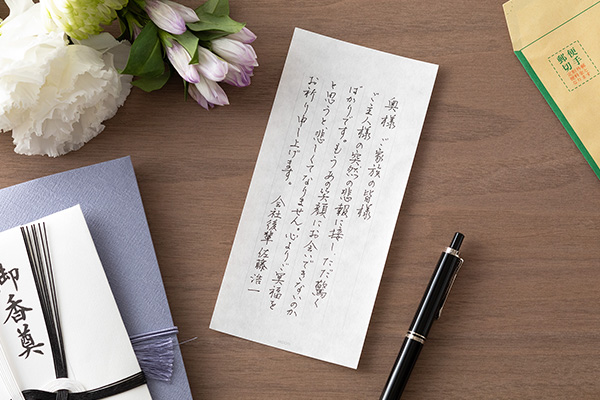 奥様 ご家族の皆様
ご主人様の突然の悲報に接し ただ驚く
ばかりです。もうあの笑顔にお会いできないのか
と思うと悲しくてなりません。心よりご冥福を
お祈り申し上げます。
会社後輩 佐藤浩一
御香奠
郵便
切手